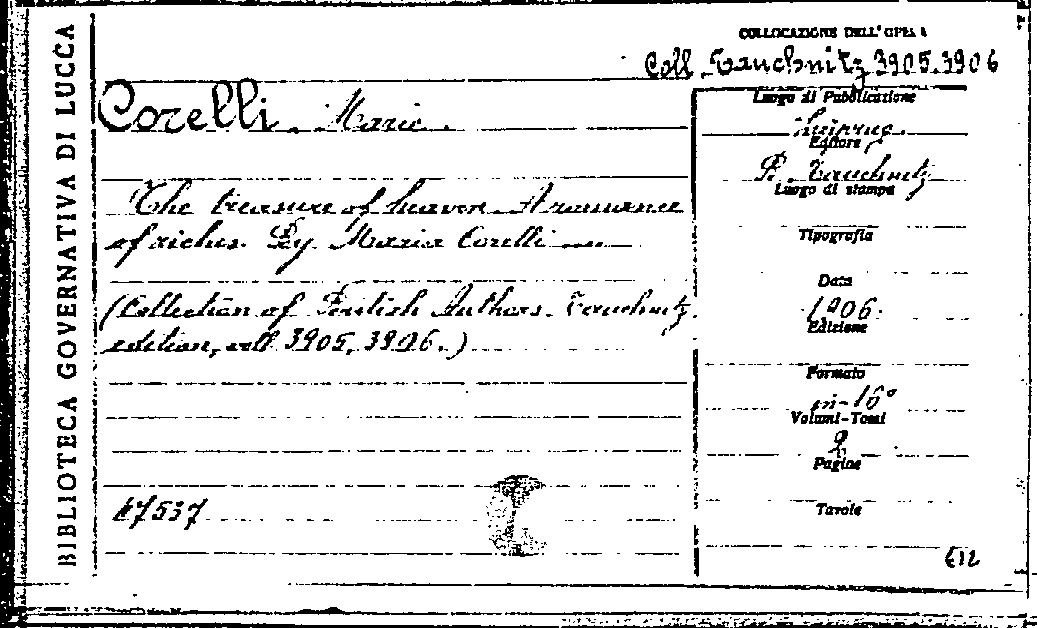 BIBLIOTECA GOVERNATIVA DI LUCCA
COLLOCAZIONE DELL'OPERA
Coll. Tauchnitz 3905.3906
Corelli. Marie.
The treasure of heaven. A romance
of riches. By Maria Corelli
(Collection of British Authors. Tauchnitz
edition, voll. 3905, 3906.)
47537
Luogo di Pubblicazione
Leipzig.
Editore
B. Tauchnitz
Luogo di stampa
Tipografia
Data
1906
Edizione
Formato
in-16°
Volumi-Tomi
2
Pagine
Tavole